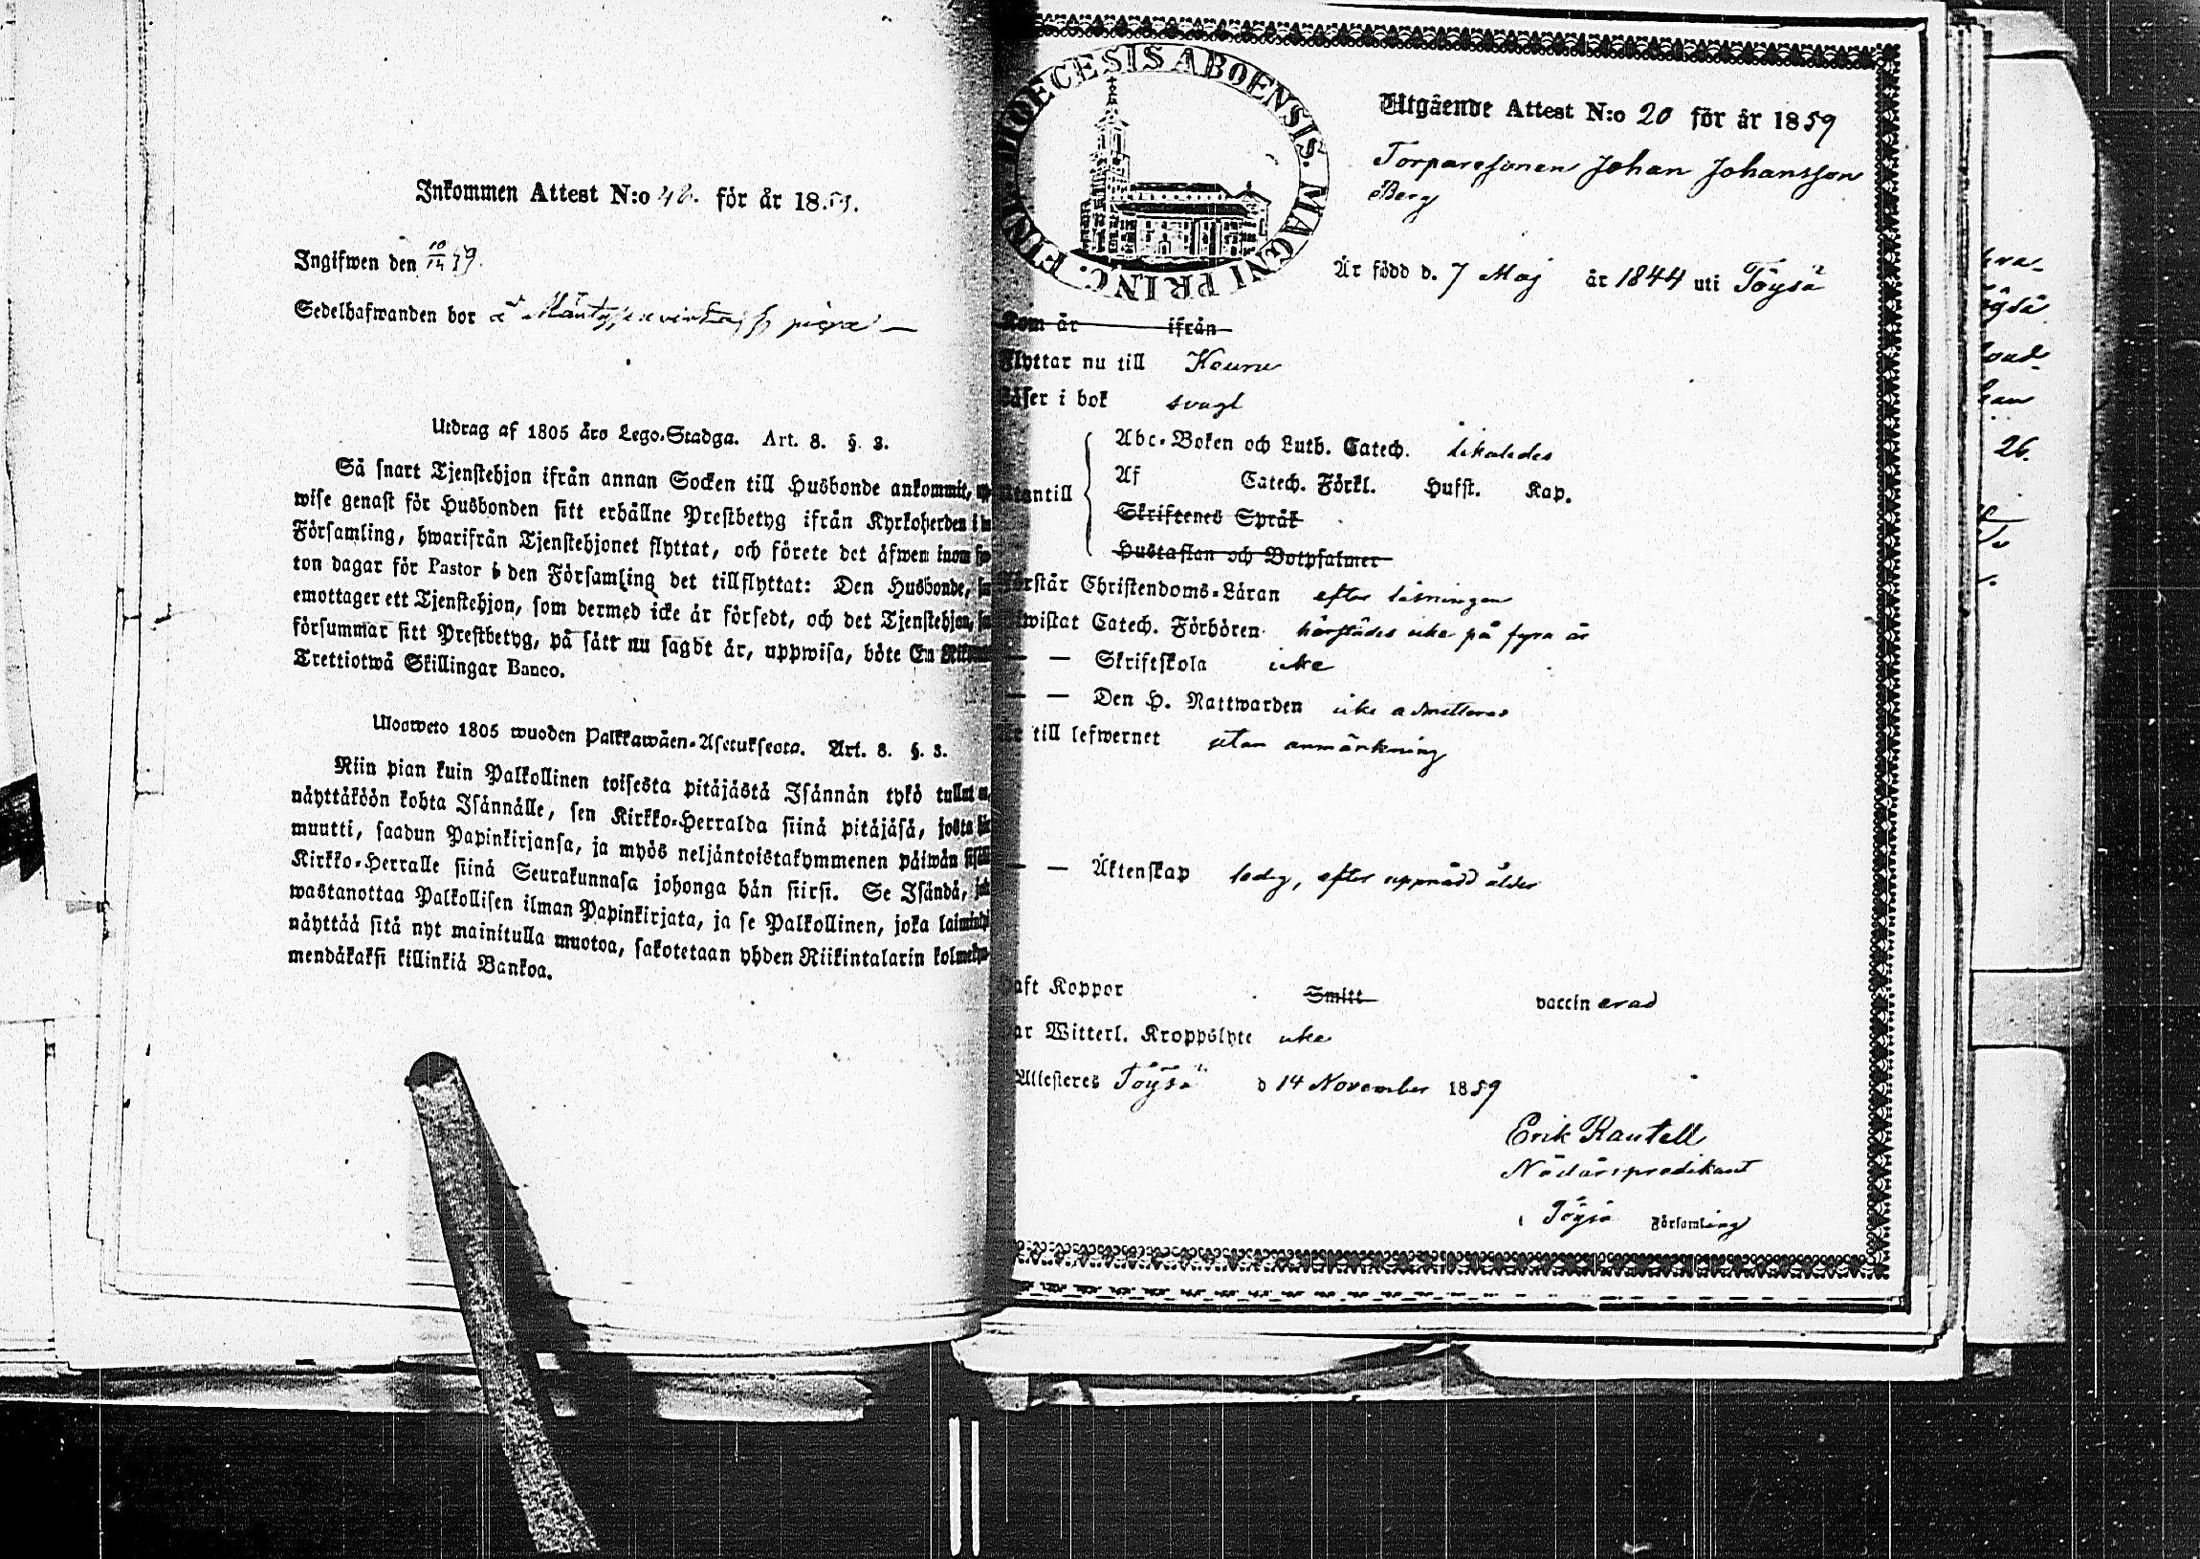 Inkommen Attest N:o 46. för år 1859.
Ingifwen den
Sedelhafwanden bor
Utdrag af 1805 års Lego-Stadga. Art. 8. §. 3.
Så snart Tjenstehjon ifrån annan Socken till Husbonde ankommit,
wise genast för Husbonden sitt erhållne Prestbetyg ifrån Kyrkoherden i
Församling, hwarifrån Tjenstehjonet flyttat, och förete det äfwen inom
ton dagar för Pastor i den Församling det tillflyttat: Den Husbonde,
emottager ett Tjenstehjon, som dermed icke är försedt, och det Tjenstehjon,
försummar sitt Prestbetyg, på sätt nu sagdt är, uppwisa, böte En
Trettiotwå Skillingar Banco.
Ulosweto 1805 wuoden Palkkawäen-Asetuksesta. Art. 8. §. 3.
Niin pian kuin Palkollinen toisesta pitäjästä Isännän tykö tullut
näyttäköön kohta Isännälle, sen Kirkko-Herralda siinä pitäjäsä, josta
muutti, saadun Papinkirjansa, ja myös neljäntoistakymmenen päiwän
Kirkko-Herralle siinä Seurakunnasa johonga hän siirsi. Se Isändä,
wastanottaa Palkollisen ilman Papinkirjata, ja se Palkollinen, joka
näyttää sitä nyt mainitulla muotoa, sakotetaan yhden Riikintalarin
mendäkaksi killinkiä Bankoa.
DIOECESIS ABOENSIS. MAGNI PRINC. FINL
Utgående Attest N:o 20 för år 1859
Torparesonen Johan Johansson
Berg
Är född d. 7 Maj år 1844 uti Töysä
Kom år ifrån
Flyttar nu till Keuru
Läser i bok svagt
Abc-Boken och Luth. Catech. likaledes
Utantill Af Catech. Förkl. Hufst. Kap.
Skriftenes Språk
Hustaflan och Botpsalmer
Förstår Christendoms-Läran efter läsningen
Catech. Förhören härstädes icke på fyra år
— — Skriftskola icke
— — Den H. Nattwarden icke admitterad
till lefwernet utan anmärkning
— — Äktenskap ledig, efter uppnådd ålder
Haft Koppor Smitt vaccinerad
Har Witterl. Kroppslyte icke
Attesteres Töysä d 14 November 1859
Erik Rautell
Nådårspredikant
i Töysä Församling
26.